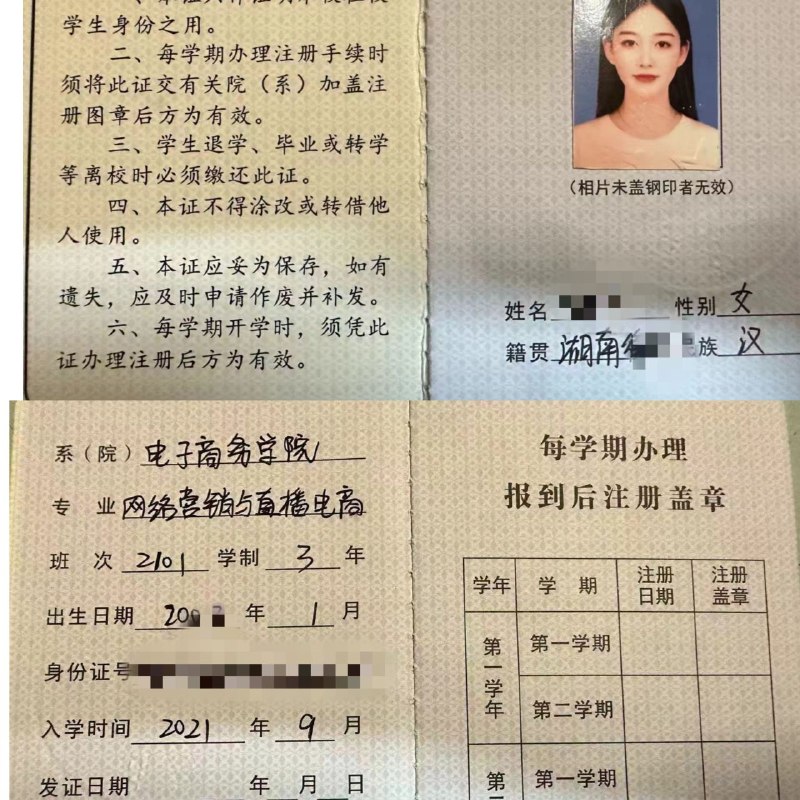 学生身份之用。
二、每学期办理注册手续时
须将此证交有关院（系）加盖注
册图章后方为有效。
三、学生退学、毕业或转学
等离校时必须缴还此证。
四、本证不得涂改或转借他
人使用。
五、本证应妥为保存，如有
遗失，应及时申请作废并补发。
六、每学期开学时，须凭此
证办理注册后方为有效。
（相片未盖钢印者无效）
姓名 性别 女
籍贯 湖南省 民族 汉
系（院） 电子商务学院
专 业 网络营销与直播电商
班 次 2101 学制 3 年
出生日期 200 年 1 月
身份证号
入学时间 2021 年 9 月
发证日期 年 月 日
每学期办理
报到后注册盖章
学年 学 期 注册日期 注册盖章
第一学年 第一学期
第二学期
第二 第一学期